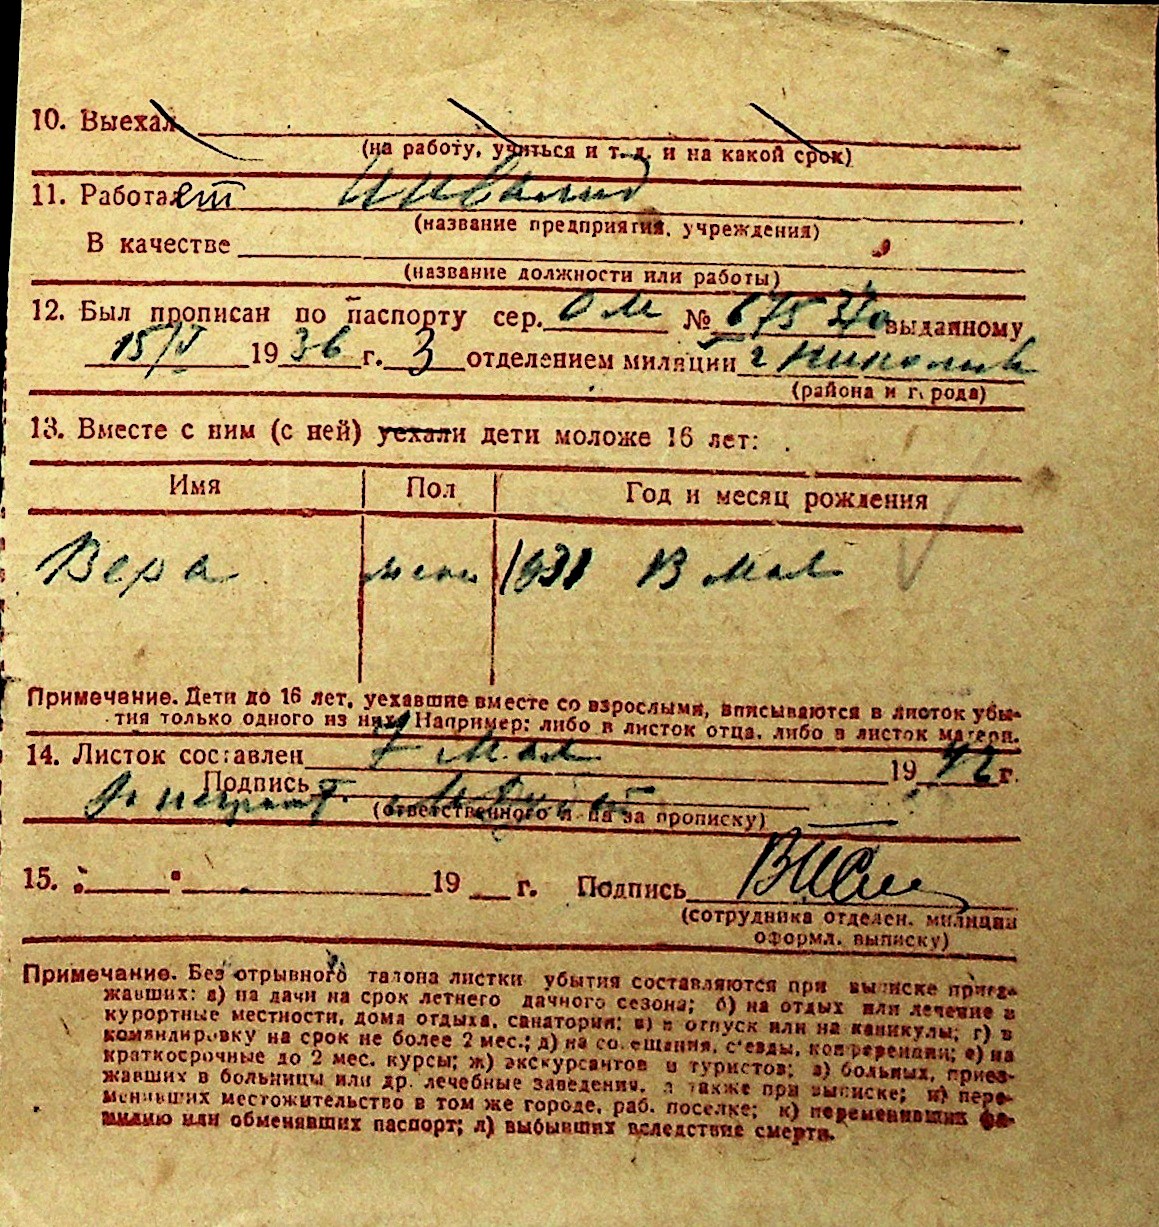 10. Выехал
(на работу, учиться и т. д. и на какой срок)
11. Работает инвалид
(название предприятия, учреждения)
В качестве
(название должности или работы)
12. Был прописан по паспорту сер. ОМ № выданному
15/V 1936 г. 3 отделением милиции г
(района и города)
13. Вместе с ним (с ней) уехали дети моложе 16 лет:
Имя Пол Год и месяц рождения
Вера жен 1931 В мае
Примечание. Дети до 16 лет, уехавшие вместе со взрослыми, вписываются в листок убы-
тия только одного из них. Например: либо в листок отца, либо в листок матери.
14. Листок составлен 7 мая 1942 г.
Подпись
(ответственного л-ца за прописку)
15. " " 19 г. Подпись
(сотрудника отделен. милиции
оформл. выписку)
Примечание. Без отрывного талона листки убытия составляются при выписке приез-
жавших: а) на дачи на срок летнего дачного сезона; б) на отдых или лечение в
курортные местности, дома отдыха, санатории; в) в отпуск или на каникулы; г) в
командировку на срок не более 2 мес.; д) на совещания, с'езды, конференции; е) на
краткосрочные до 2 мес. курсы; ж) экскурсантов и туристов; з) больных, приез-
жавших в больницы или др. лечебные заведения, а также при выписке; и) пере-
менивших местожительство в том же городе, раб. поселке; к) переменивших фа-
милию или обменявших паспорт; л) выбывших вследствие смерти.